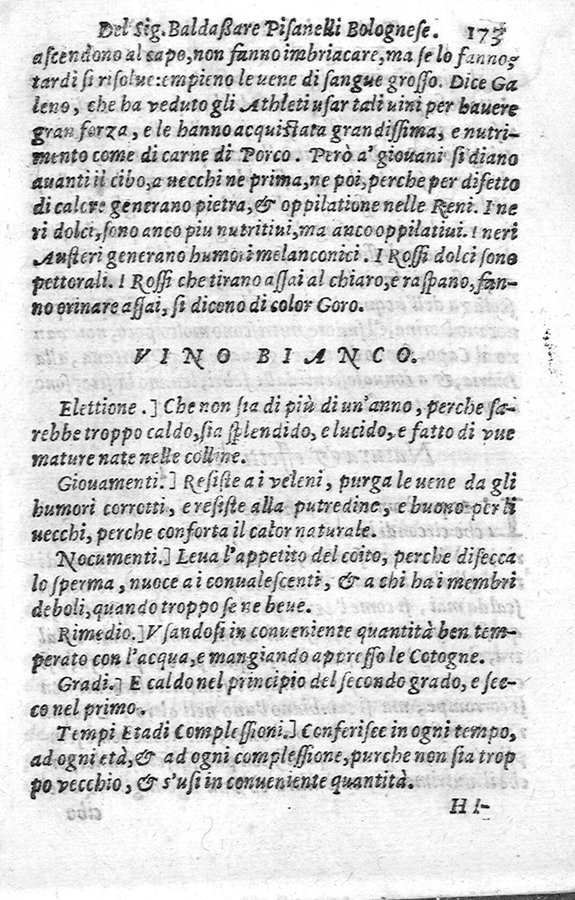 Del Sig. Baldaßare Pisanelli Bolognese. 173
ascendono al capo, non fanno imbriacare, ma se lo fanno,
tardi si risolue: empieno le uene di sangue grosso. Dice Ga
leno, che ha veduto gli Athleti usar tali uini per hauere
gran forza, e le hanno acquistata grandissima, e nutri-
mento come di carne di Porco. Però a' giouani si diano
auanti il cibo, a uecchi ne prima, ne poi, perche per difetto
di calore generano pietra, & oppilatione nelle Reni. I ne
ri dolci, sono anco piu nutritiui, ma anco oppilatiui. I neri
Austeri generano humori melanconici. I Rossi dolci sono
pettorali. I Rossi che tirano assai al chiaro, e raspano, fan-
no orinare assai, si dicono di color Goro.
VINO BIANCO.
Elettione.] Che non sia di più di un'anno, perche sa-
rebbe troppo caldo, sia splendido, e lucido, e fatto di vue
mature nate nelle colline.
Giouamenti.] Resiste a i veleni, purga le uene da gli
humori corrotti, e resiste alla putredine, e buono per li
uecchi, perche conforta il calor naturale.
Nocumenti.] Leua l'appetito del coito, perche disecca
lo sperma, nuoce a i conualescenti, & a chi ha i membri
deboli, quando troppo se ne beue.
Rimedio.] Vsandosi in conueniente quantità ben tem-
perato con l'acqua, e mangiando appresso le Cotogne.
Gradi.] E caldo nel principio del secondo grado, e sec-
co nel primo.
Tempi Etadi Complessioni.] Conferisce in ogni tempo,
ad ogni età, & ad ogni complessione, purche non sia trop
po vecchio, & s'usi in conueniente quantità.
HI-